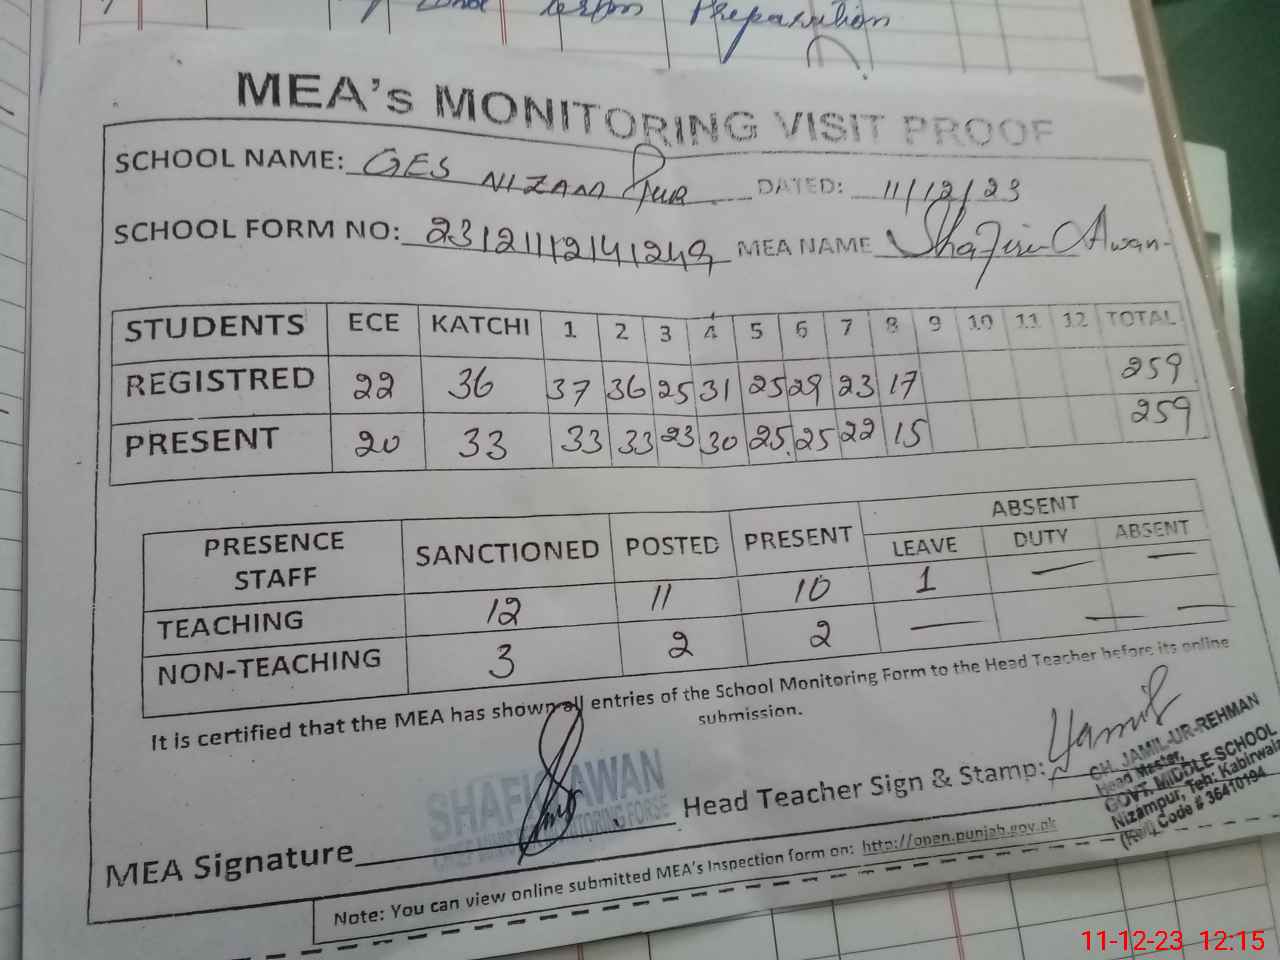 lesson Preparation
MEA's MONITORING VISIT PROOF
SCHOOL NAME: GES NIZAM PUR DATED: 11/12/23
SCHOOL FORM NO: MEA NAME Shafiq Awan
STUDENTS ECE KATCHI 1 2 3 4 5 6 7 8 9 10 11 12 TOTAL
REGISTRED 22 36 37 36 25 31 25 29 23 17 259
PRESENT 20 33 33 33 23 30 25 25 22 15 259
ABSENT
PRESENCE STAFF SANCTIONED POSTED PRESENT LEAVE DUTY ABSENT
TEACHING 12 11 10 1 — —
NON-TEACHING 3 2 2 — — —
It is certified that the MEA has shown all entries of the School Monitoring Form to the Head Teacher before its online
submission.
SHAFIQ AWAN
MEA Signature Head Teacher Sign & Stamp: Jamil
CH. JAMIL-UR-REHMAN
Head Master,
GOVT. MIDDLE SCHOOL
Nizampur, Teh: Kabirwala
Code # 36410194
Note: You can view online submitted MEA's Inspection form on: http://open.punjab.gov.pk
11-12-23 12:15